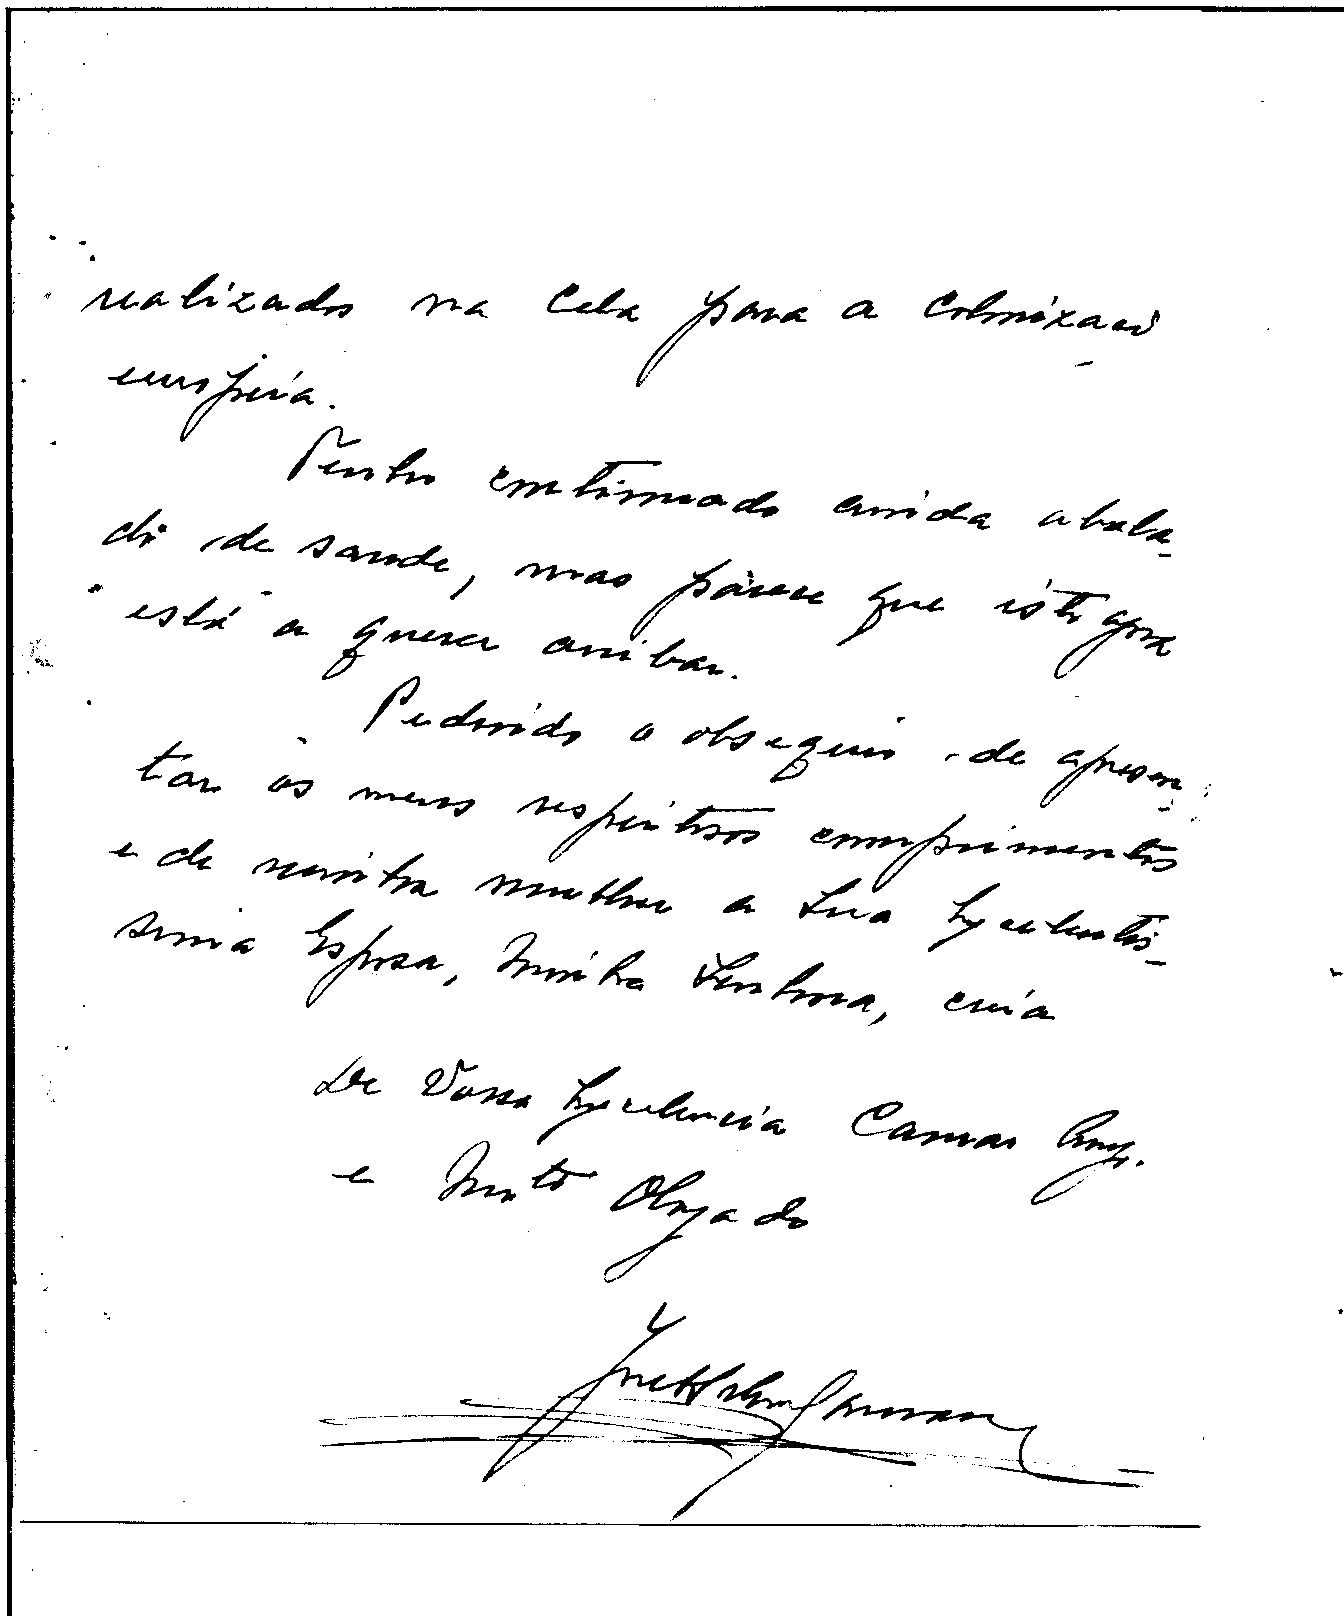 realizados na Cela para a colonização
europeia.
Tenho continuado ainda abala-
do de saude, mas parece que isto agora
está a querer arribar.
Pedindo o obsequio de apresen-
tar os meus respeitosos cumprimentos
e de minha mulher a Sua Excelentis-
sima Esposa, Minha Senhora, creia
De Vossa Excelencia Camar Amg.
e Muito Obrgado